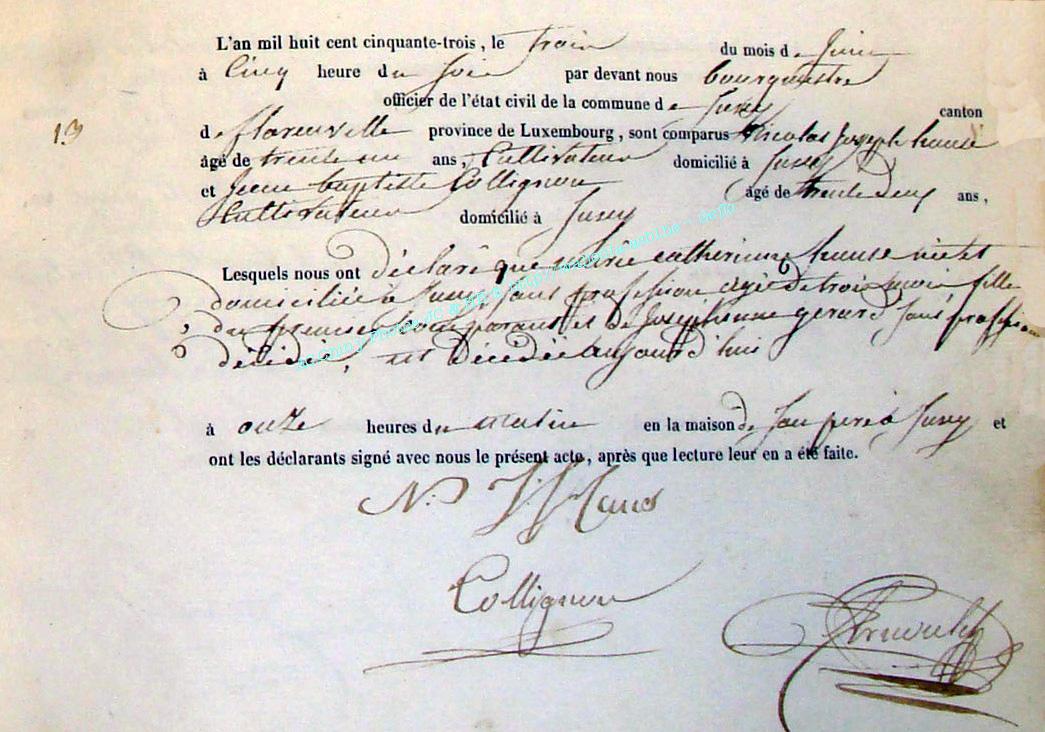 L'an mil huit cent cinquante-trois, le trois du mois de Juin
à Cinq heure du Soir par devant nous bourguestre
officier de l'état civil de la commune de Jusey canton
13
de florenville province de Luxembourg, sont comparus Nicolas Joseph hause
âgé de trente un ans, Cultivateur domicilié à Jusey
et Jean baptiste Collignon âgé de trente deux ans,
Cultivateur domicilié à Jusey
Lesquels nous ont déclaré que Marie catherinne hause
domiciliée à Jusey, sans profession agé de trois mois fille
du premier Comparant et de Josephinne gerard sans profession
décédée, est Décédée aujourd'hui
à onze heures du matin en la maison de son pere à Jusey et
ont les déclarants signé avec nous le présent acte, après que lecture leur en a été faite.
N. J. Haus
Collignon